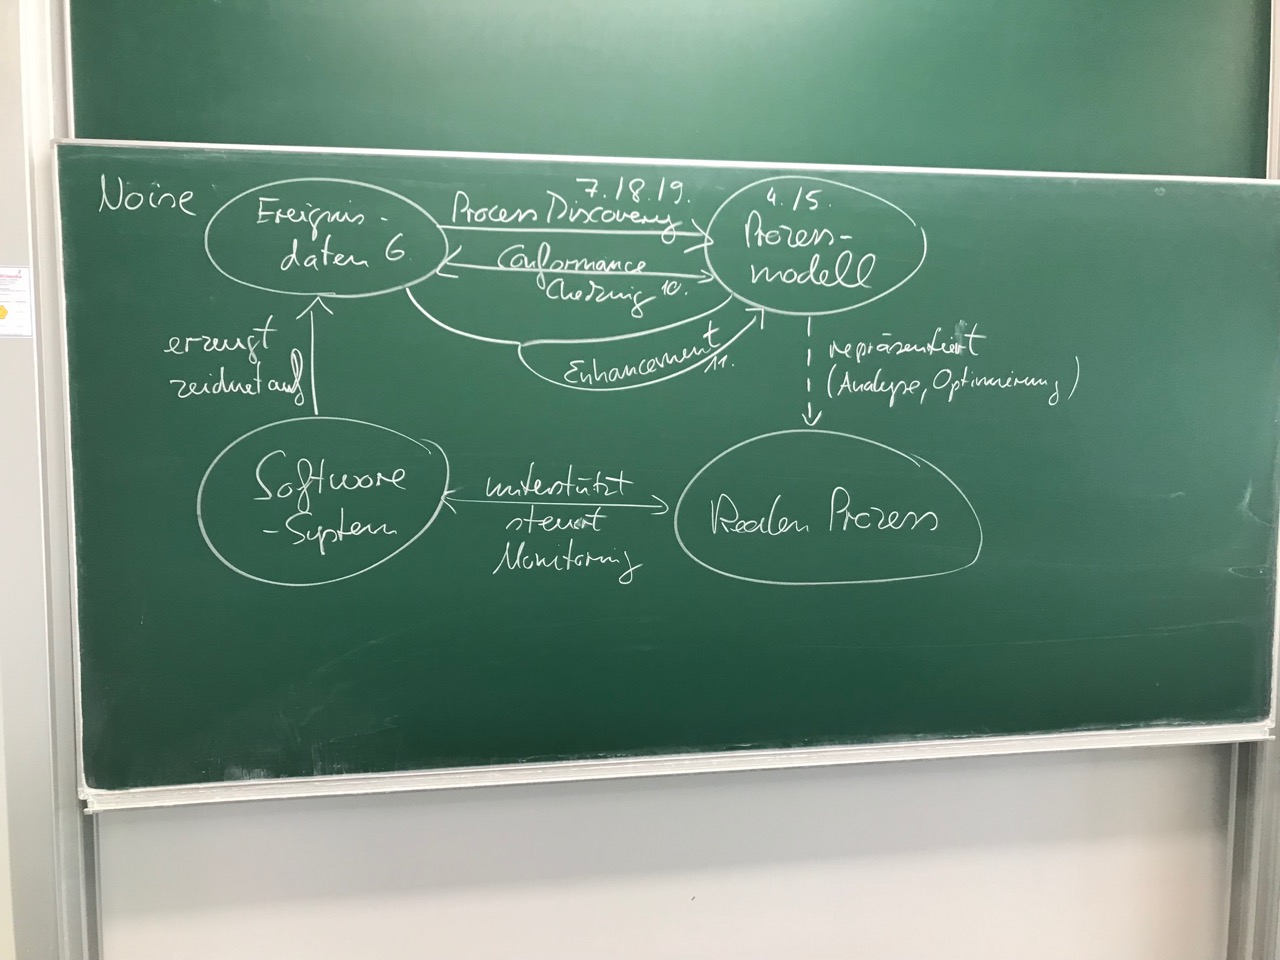 Noise
Ereignis-
daten 6.
7./8./9.
Process Discovery
Conformance
Checking 10.
Enhancement
11.
4./5.
Prozess-
modell
erzeugt
zeichnet auf
repräsentiert
(Analyse, Optimierung)
Software
-System
unterstützt
steuert
Monitoring
Realen Prozess